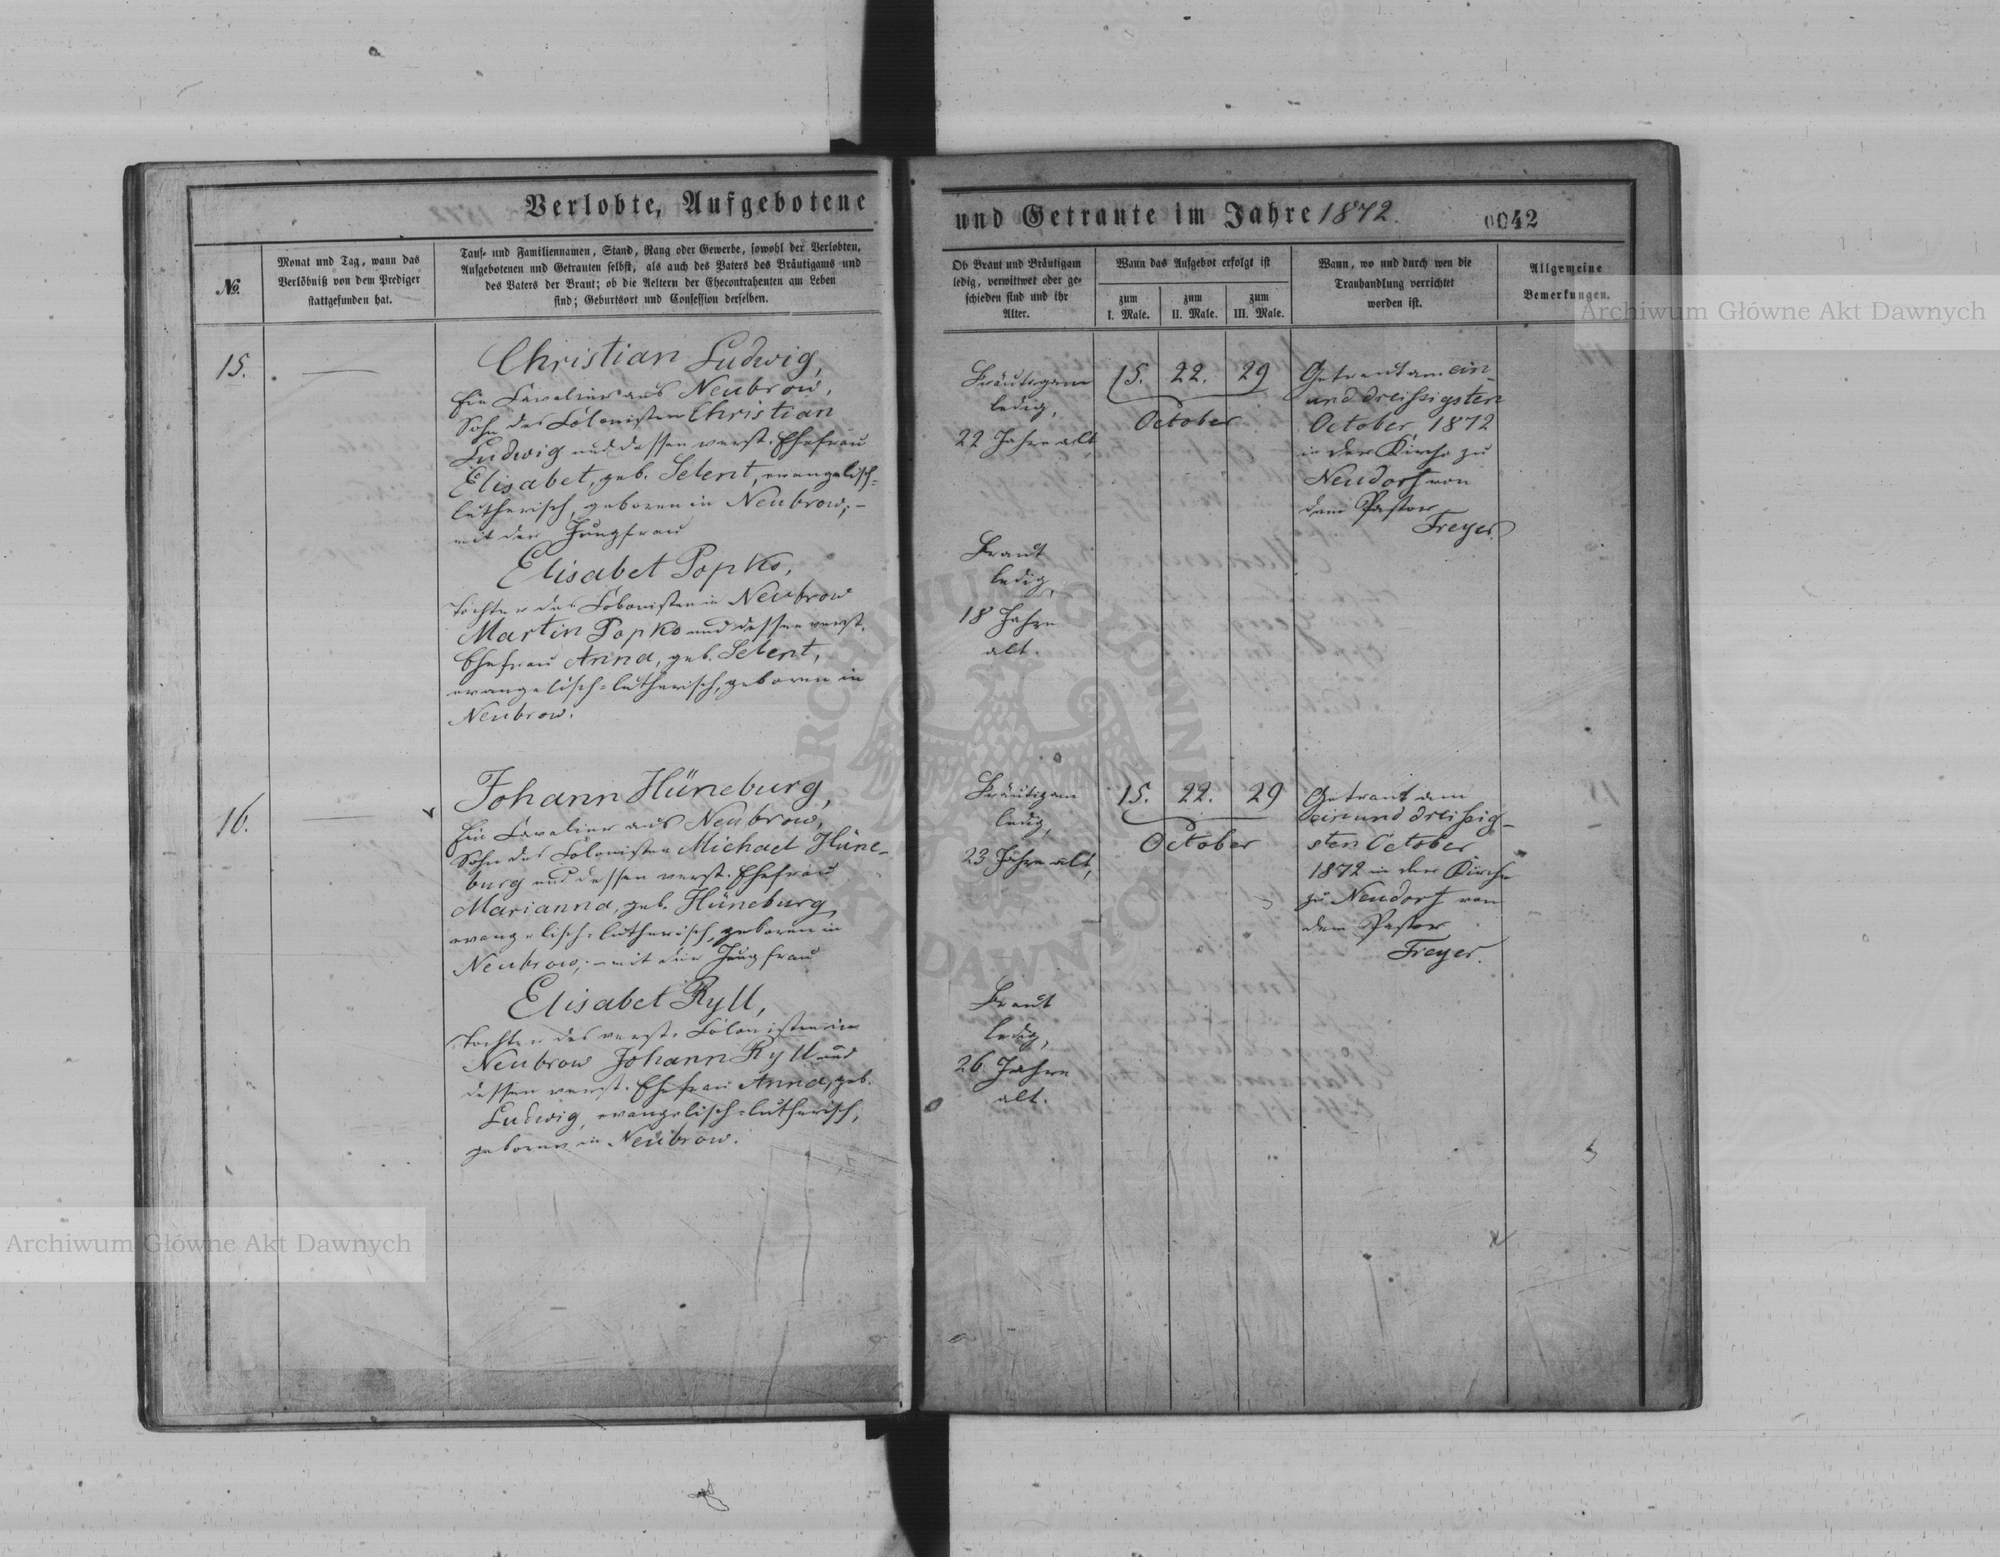 Verlobte, Aufgebotene
und Getraute im Jahre 1872.
0042
№.
Monat und Tag, wann das
Verlöbniß von dem Prediger
stattgefunden hat.
Tauf- und Familiennamen, Stand, Rang oder Gewerbe, sowohl der Verlobten,
Aufgebotenen und Getrauten selbst, als auch des Vaters des Bräutigams und
des Vaters der Braut; ob die Aeltern der Ehecontrahenten am Leben
sind; Geburtsort und Confession derselben.
Ob Braut und Bräutigam
ledig, verwittwet oder ge-
schieden sind und ihr
Alter.
Wann das Aufgebot erfolgt ist
zum
I. Male.
zum
II. Male.
zum
III. Male.
Wann, wo und durch wen die
Trauhandlung verrichtet
worden ist.
Allgemeine
Bemerkungen.
15.
Christian Ludwig,
Ein Cavalier aus Neubrow,
Sohn des Colonisten Christian
Ludwig und dessen verst. Ehefrau
Elisabet, geb. Selent, evangelisch-
lutherisch, geboren in Neubrow, –
mit der Jungfrau
Elisabet Popko,
Tochter des Colonisten in Neubrow
Martin Popko und dessen verst.
Ehefrau Anna, geb. Selent,
evangelisch-lutherisch, geboren in
Neubrow.
Bräutigam
ledig,
22 Jahre alt,
Braut
ledig,
18 Jahre
alt.
15. 22. 29
October
Getraut am ein-
und dreißigsten
October 1872
in der Kirche zu
Neudorf von
dem Pastor
Freyer.
16.
Johann Hüneburg,
Ein Cavalier aus Neubrow,
Sohn des Colonisten Michael Hüne-
burg und dessen verst. Ehefrau
Marianna, geb. Hüneburg,
evangelisch-lutherisch, geboren in
Neubrow, – mit der Jungfrau
Elisabet Ryll,
Tochter des verst. Colonisten in
Neubrow Johann Ryll und
dessen verst. Ehefrau Anna, geb.
Ludwig, evangelisch-lutherisch,
geboren in Neubrow.
Bräutigam
ledig,
23 Jahre alt,
Braut
ledig,
26 Jahre
alt.
15. 22. 29
October
Getraut am
ein und dreißig-
sten October
1872 in der Kirche
zu Neudorf von
dem Pastor
Freyer.
Archiwum Główne Akt Dawnych
Archiwum Główne Akt Dawnych
ARCHIWUM GŁÓWNE AKT DAWNYCH